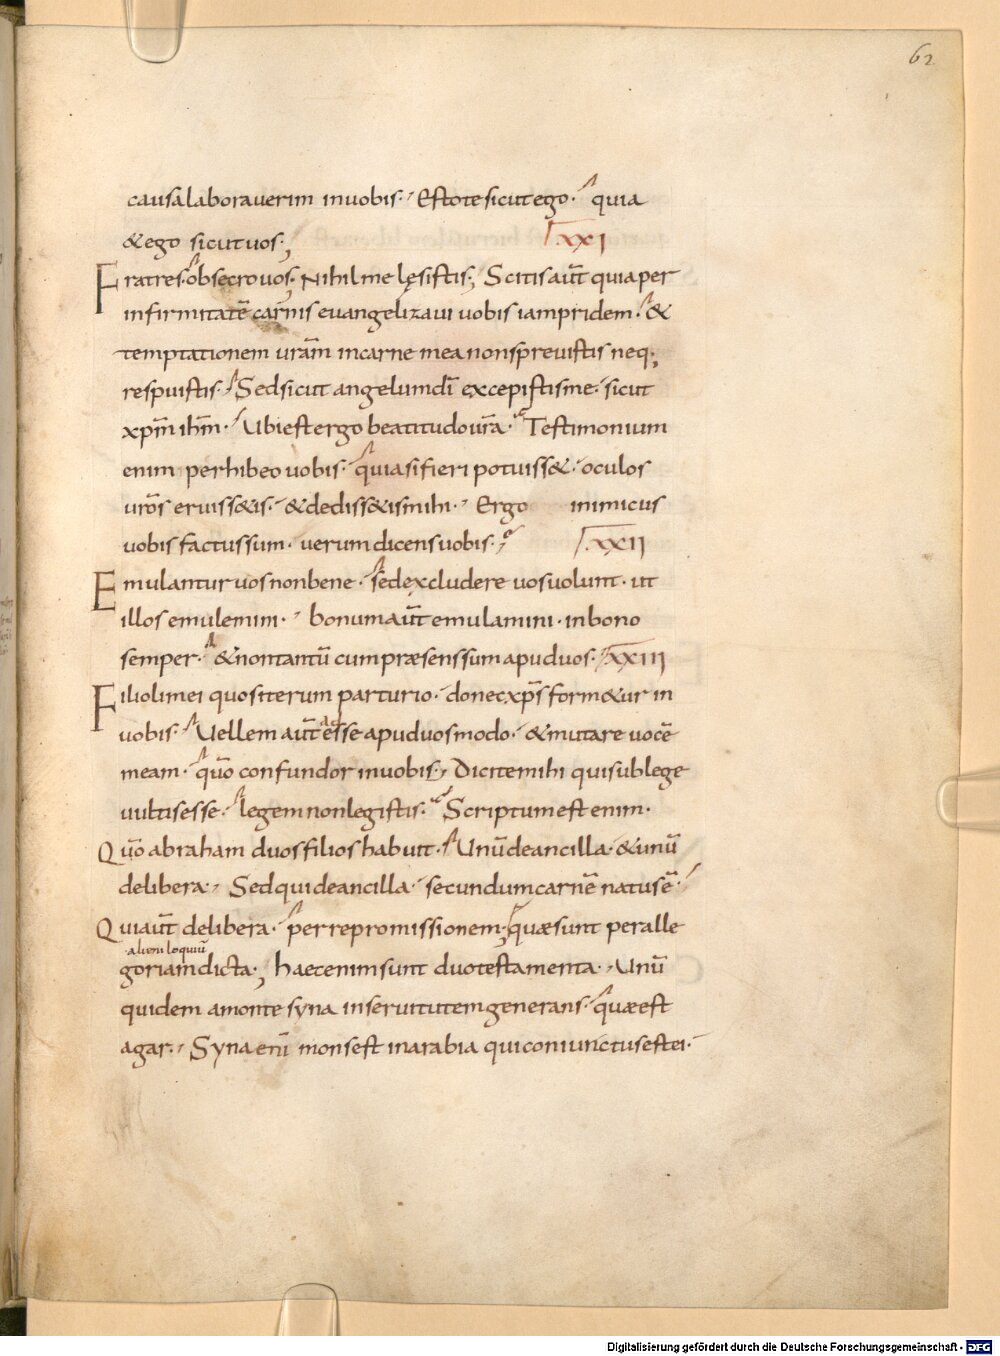 62
causa laboraverim in uobis· Estote sicut ego· quia
& ego sicut uos;
XXI
Fratres· obsecro uos; Nihil me lęsistis; Scitis aūt quia per
infirmitatē carnis euangelizaui uobis iampridem· &
temptationem ur̄am in carne mea non sprevistis neq;
respuistis· Sed sicut angelum dī excepistis me· sicut
xp̄m ih̄m· Ubi est ergo beatitudo ur̄a· Testimonium
enim perhibeo uobis· quia si fieri potuiss&· oculos
ur̄os eruiss&is· & dediss&is mihi· Ergo inimicus
uobis factus sum· uerum dicens uobis·
XXII
Emulantur uos non bene· sed excludere uos uolunt· ut
illos emulemini· bonum aūt emulamini· in bono
semper· & non tantū cum præsens sum apud uos·
XXIII
Filioli mei quos iterum parturio· donec xp̄s form&ur in
uobis· Uellem aūt esse apud uos modo· & mutare uocē
meam· qūo confundor in uobis; Dicite mihi qui sub lege
uultis esse· legem non legistis· Scriptum est enim·
Qūo abraham duos filios habuit· Unū de ancilla· & unū
de libera· Sed qui de ancilla· secundum carnē natus ē·
Qui aūt de libera· per repromissionem; quæ sunt per alle
·alieni loquiū
goriam dicta; haec enim sunt duo testamenta· Unū
quidem a monte syna in seruitutem generans· quæ est
agar· Syna enī mons est in arabia qui coniunctus est ei·
Digitalisierung gefördert durch die Deutsche Forschungsgemeinschaft · DFG